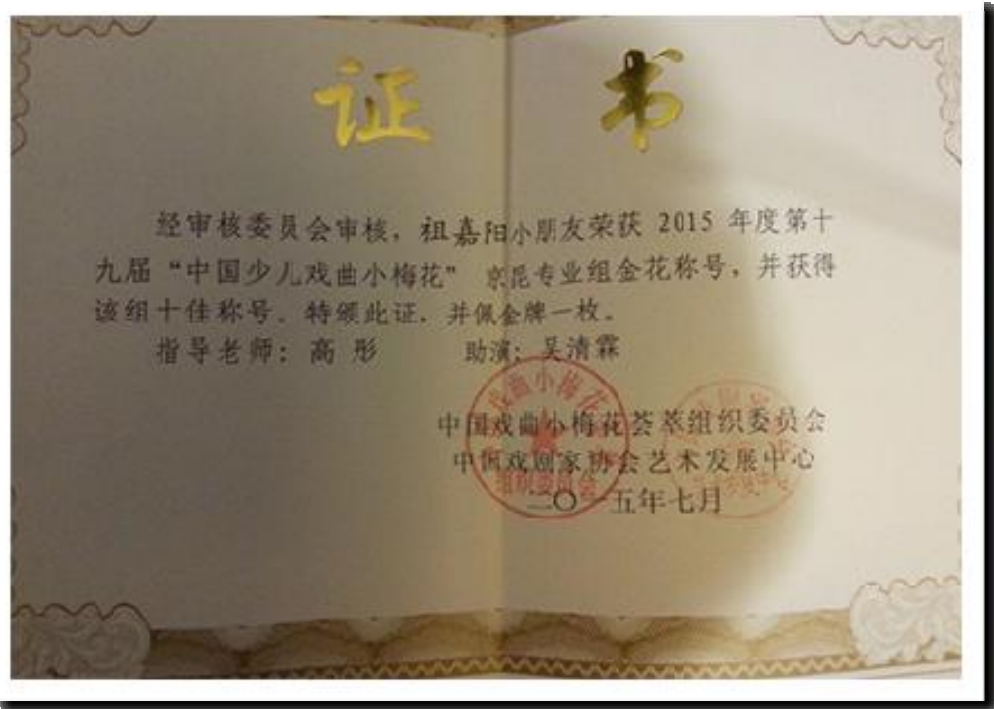 证 书
经审核委员会审核，祖嘉阳小朋友荣获 2015 年度第十
九届“中国少儿戏曲小梅花” 京昆专业组金花称号，并获得
该组十佳称号。特颁此证，并佩金牌一枚。
指导老师：高 彤 助演：吴清霖
中国戏曲小梅花荟萃组织委员会
中国戏剧家协会艺术发展中心
二〇一五年七月
戏曲小梅花
组织委员会